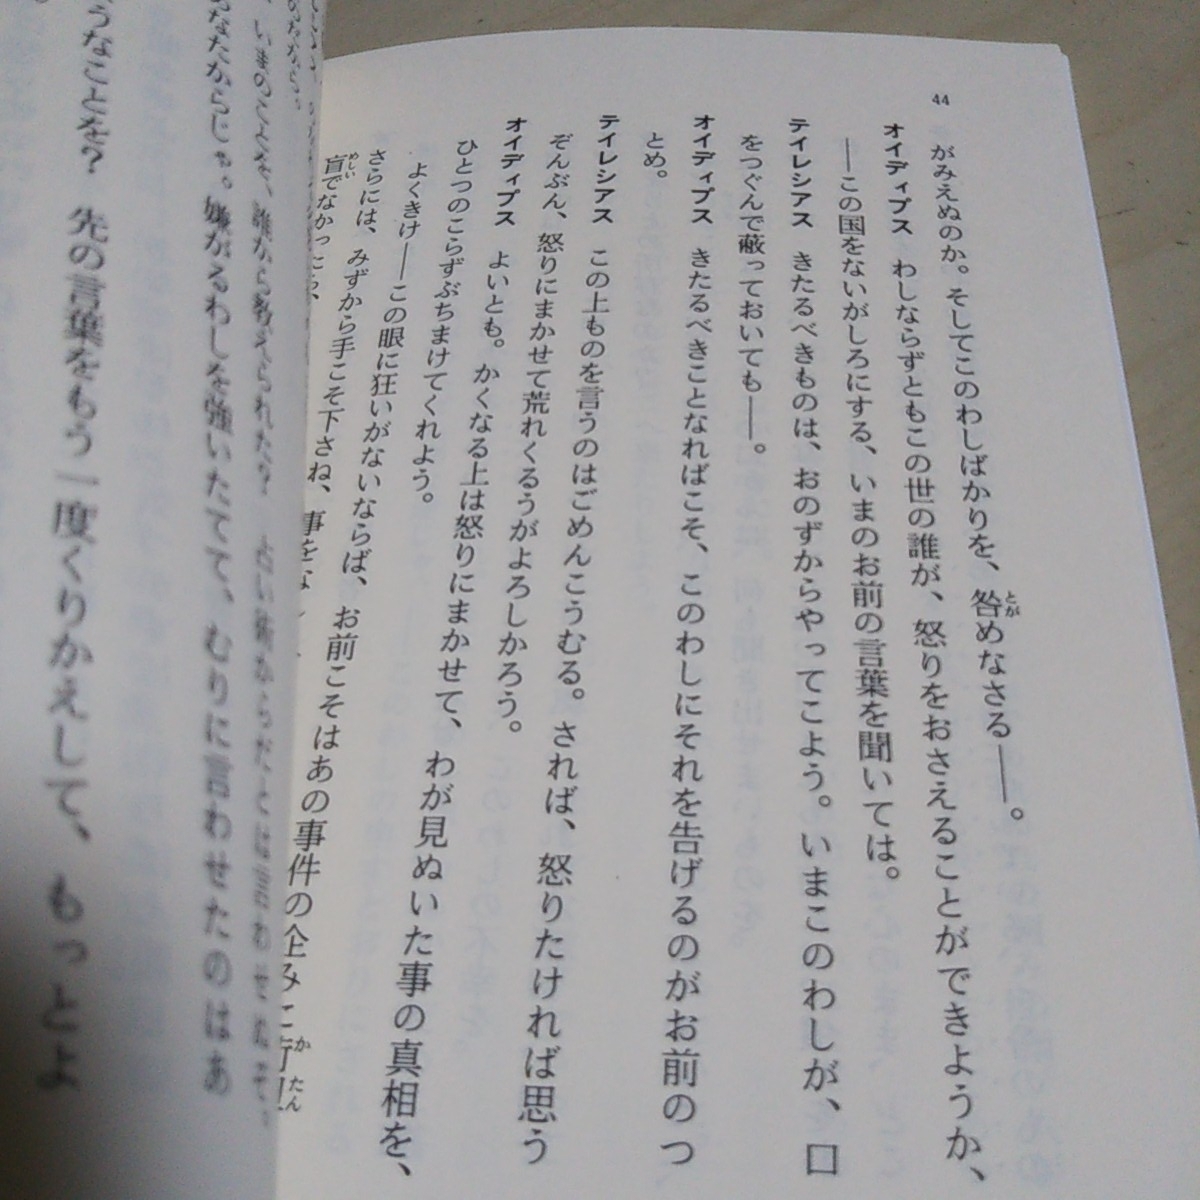 44
がみえぬのか。そしてこのわしばかりを、咎めなさる――。
とが
オイディプス　わしならずともこの世の誰が、怒りをおさえることができようか、
――この国をないがしろにする、いまのお前の言葉を聞いては。
テイレシアス　きたるべきものは、おのずからやってこよう。いまこのわしが、口
をつぐんで蔽っておいても――。
オイディプス　きたるべきことなればこそ、このわしにそれを告げるのがお前のつ
とめ。
テイレシアス　この上ものを言うのはごめんこうむる。されば、怒りたければ思う
ぞんぶん、怒りにまかせて荒れくるうがよろしかろう。
オイディプス　よいとも。かくなる上は怒りにまかせて、わが見ぬいた事の真相を、
ひとつのこらずぶちまけてくれよう。
よくきけ――この眼に狂いがないならば、お前こそはあの事件の企みに
かたん
さらには、みずから手こそ下さね、事をな
盲でなかったら、
めしい
いまのことを、誰から教えられた？　占い術からだとは言わせぬぞ。
あなたからじゃ。嫌がるわしを強いたてて、むりに言わせたのはあ
うなことを？　先の言葉をもう一度くりかえして、もっとよ